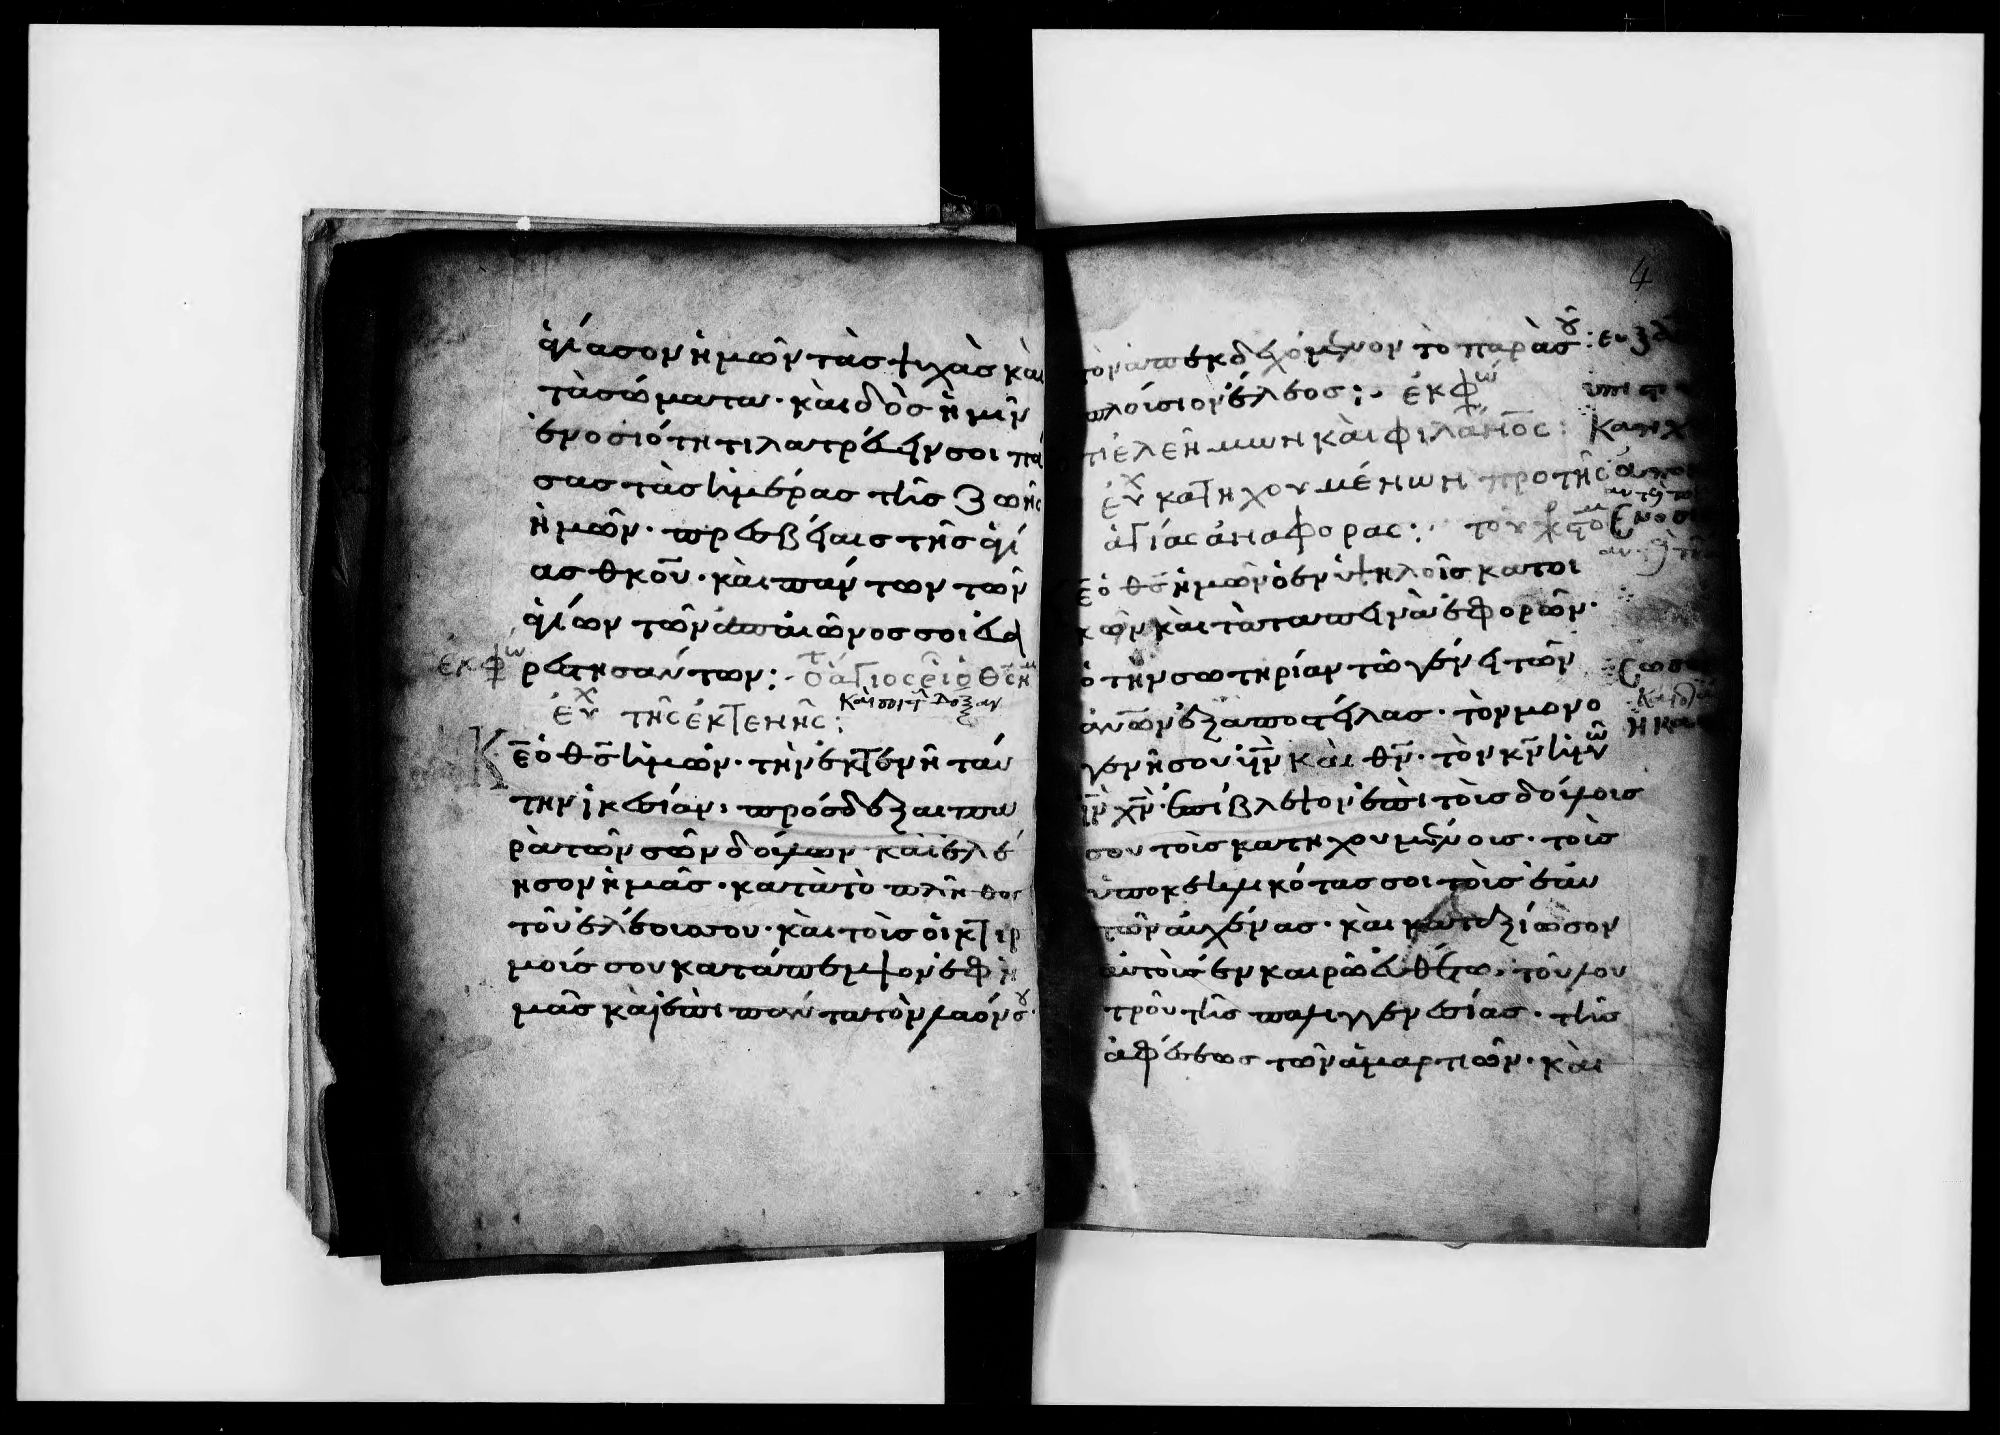 ἁγίασον ἡμῶν τὰς ψυχὰς καὶ
τὰ σώματα· καὶ δὸς ἡμῖν
ἐν ὁσιότητι λατρεύειν σοι πά
σας τὰς ἡμέρας τῆς ζωῆς
ἡμῶν· πρεσβείαις τῆς ἁγί
ας θκου· καὶ πάντων τῶν
ἁγίων τῶν ἀπ αἰῶνος σοι εὐα
ἐκφω ρεστησάντων: ὅτι ἅγιος εἶ ὁ θς ἡμ
καὶ σοὶ τ δόξαν
εὐχ τῆς ἐκτενῆς:
Κε ὁ θς ἡμῶν· τὴν ἐκτενῆ ταύ
την ἱκεσίαν· πρόσδεξαι πα
ρὰ τῶν σῶν δούλων καὶ ἐλέ
ησον ἡμᾶς· κατὰ τὸ πλῆθος
τοῦ ἐλέους σου· καὶ τοὺς οἰκτιρ
μούς σου κατάπεμψον ἐφ ἡ
μᾶς καὶ ἐπὶ πάντα τὸν λαόν σου·
4
τὸν ἀπεκδεχόμενον τὸ παρὰ σοῦ
πλούσιον ἔλεος: ἐκφω
ὅτι ἐλεήμων καὶ φιλανος:
εὐχ κατηχουμένων πρὸ τῆς
ἁγίας ἀναφορας: τοῦ χρστομ
Κε ὁ θς ἡμῶν ὁ ἐν ὑψηλοῖς κατοι
κῶν καὶ τὰ ταπεινὰ ἐφορῶν·
ὁ τὴν σωτηρίαν τῶ γένει τῶν
ἀνων ἐξαποστείλας· τὸν μονο
γενῆ σου υν καὶ θν· τὸν κν ἡμῶν
ιν χν· ἐπίβλεψον ἐπὶ τοὺς δούλους
σου τοὺς κατηχουμένους· τοὺς
ὑποκεκλικότας σοι τοὺς ἑαυ
τῶν αὐχένας· καὶ καταξίωσον
αὐτοὺς ἐν καιρῶ εὐθέτω· τοῦ λου
τροῦ τῆς παλιγγενεσίας· τῆς
ἀφέσεως τῶν ἁμαρτιῶν· καὶ